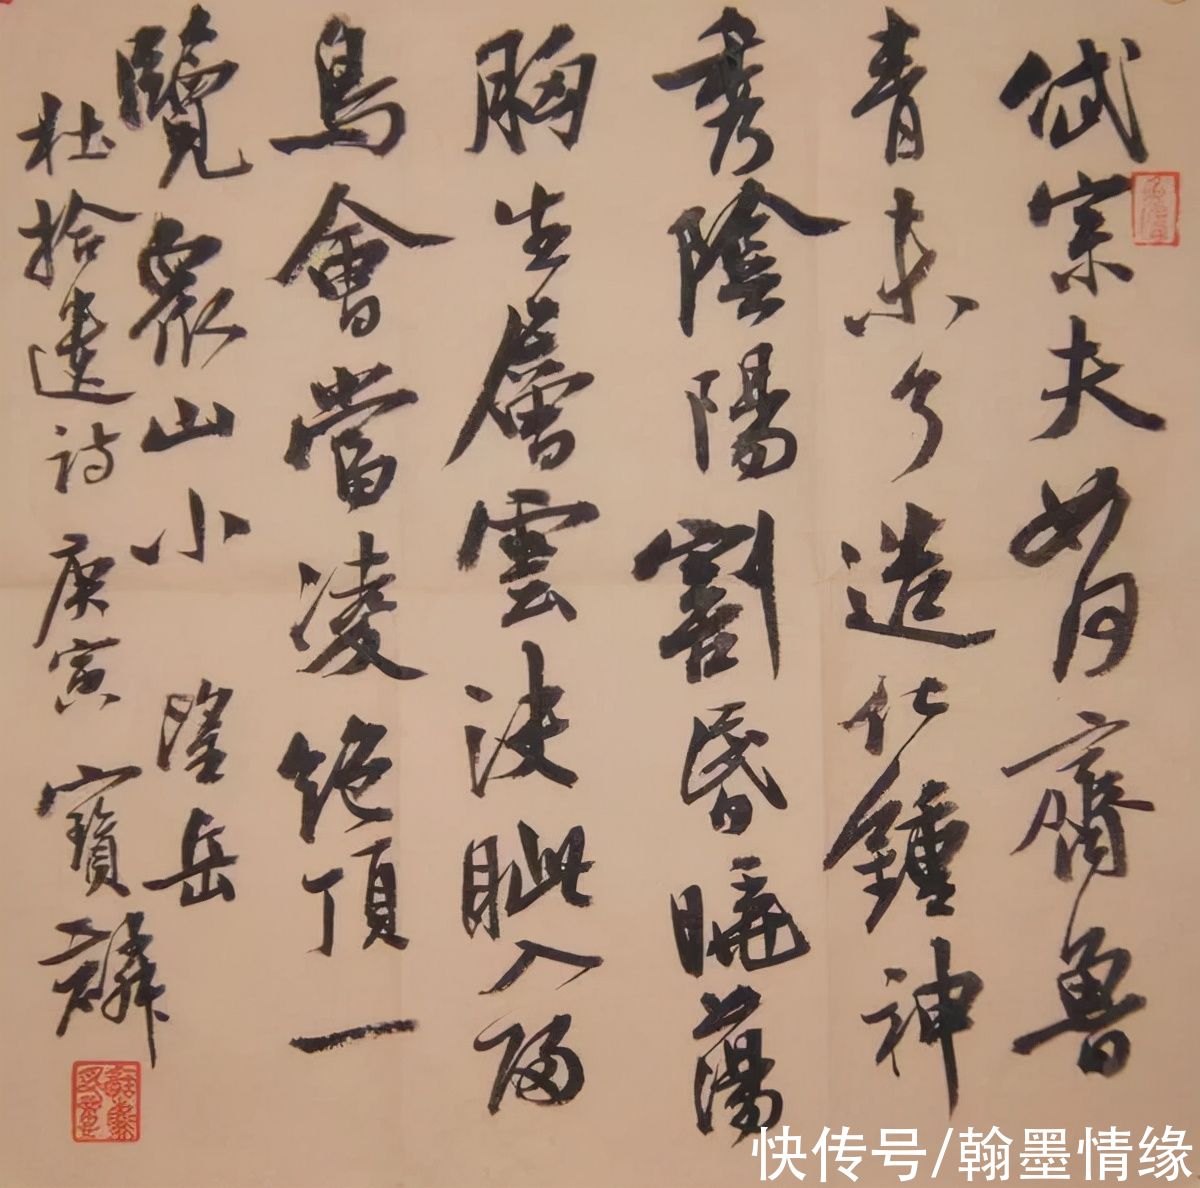 岱宗夫如何齊魯
青未了造化鍾神
秀陰陽割昏曉蕩
胸生層雲決眦入歸
鳥會當凌絕頂一
覽眾山小 望岳
杜拾遺詩 庚寅 寶麟
快传号/翰墨情缘